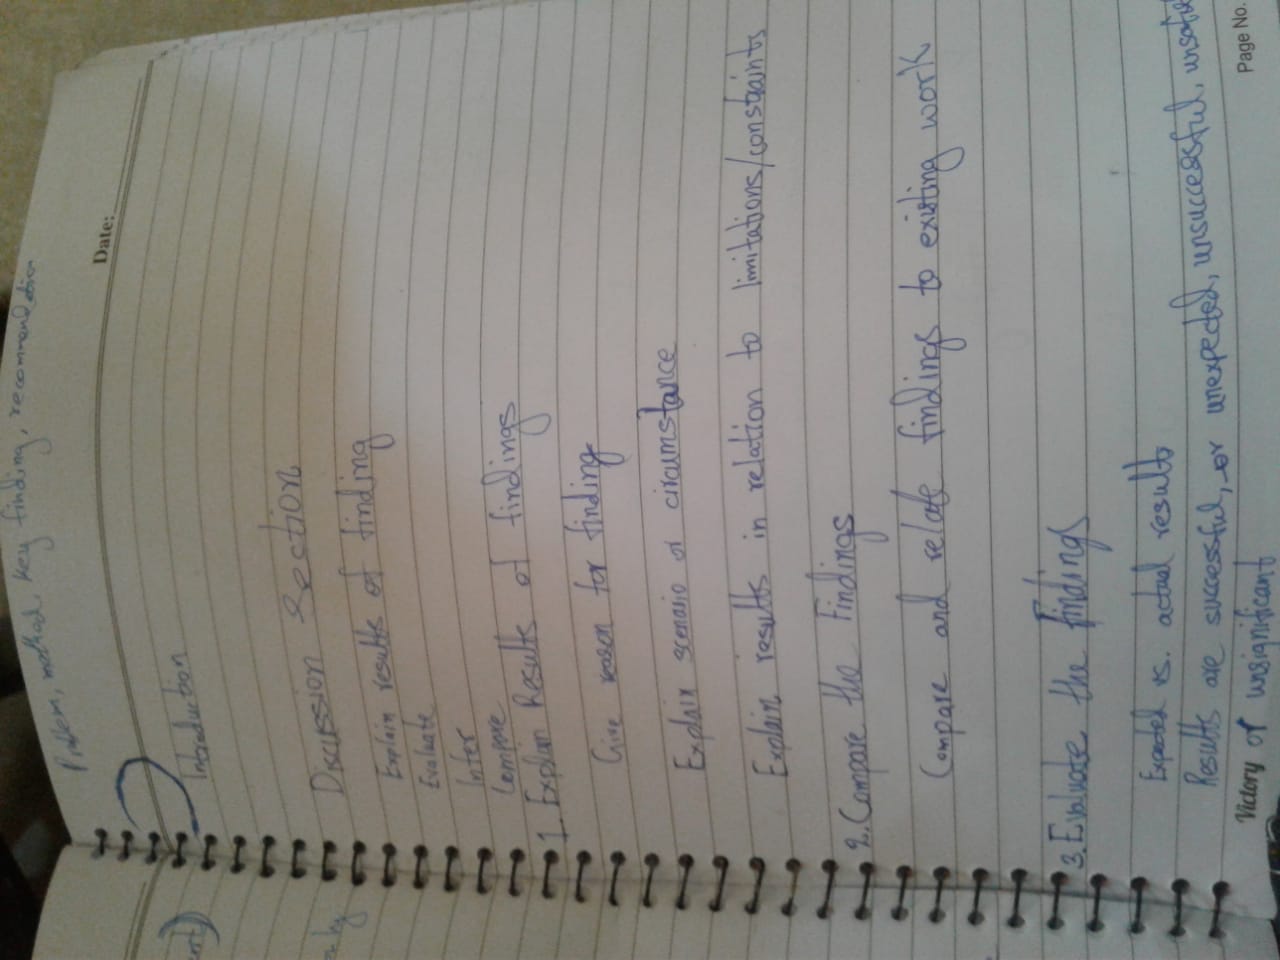 Problem, method, key finding, recommendation
Date:
Introduction
Discussion section
Explain results of finding
Evaluate
Infer
Compare
1. Explain Results of findings
Give reason for finding
Explain scenario or circumstance
Explain results in relation to limitations/constraints
2. Compare the Findings
Compare and relate findings to existing work
3. Evaluate the findings
Expected vs. actual results
Results are successful, or unexpected, unsuccessful,
or unsignificant
Victory
Page No.